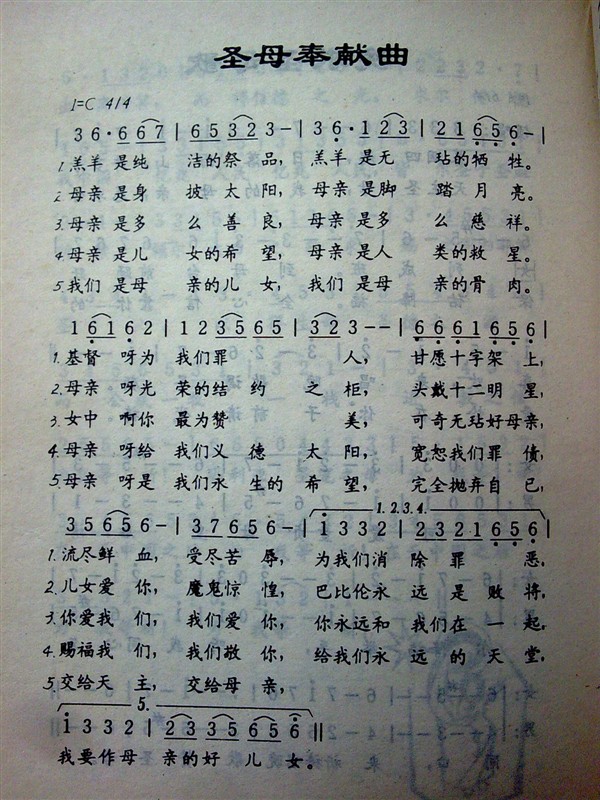 圣母奉献曲
1=C 4/4
3 6· 6 6 7 | 6 5 3 2 3 - | 3 6· 1 2 3 | 2 1 6 5 6 - |
1 羔羊 是纯 洁的祭 品，羔羊 是无 玷的牺 牲。
2.母亲 是身 披 太 阳，母亲 是脚 踏 月 亮。
3.母亲 是多 么 善 良，母亲 是多 么 慈 祥。
4.母亲 是儿 女的希 望，母亲 是人 类的救 星。
5.我们 是母 亲的儿 女，我们 是母 亲的骨 肉。
1 6 1 6 2 | 1 2 3 5 6 5 | 3 2 3 - - | 6 6 6 1 6 5 6 |
1.基督 呀为 我们罪 人，甘愿十字架 上，
2.母亲 呀光 荣的结 约 之 柜，头戴十二明 星，
3.女中 啊你 最为赞 美，可奇无玷好母亲，
4.母亲 呀给 我们义 德 太 阳，宽恕我们罪 债，
5.母亲 呀是 我们永 生的 希 望，完全抛弃自 己，
3 5 6 5 5 - | 3 7 6 5 6 - - | 1.2.3.4. i 3 3 2 | 2 3 2 1 6 5 6 |
1.流尽鲜 血，受尽苦 辱，为我们消 除 罪 恶，
2.儿女爱 你，魔鬼惊 惶，巴比伦永 远 是 败 将，
3.你爱我 们，我们爱 你，你永远和 我们 在 一 起，
4.赐福我 们，我们敬 你，给我们永 远 的 天 堂，
5.交给天 主，交给母 亲，
5.
i 3 3 2 | 2 3 3 5 6 5 6 ||
我要作母 亲的好 儿 女。